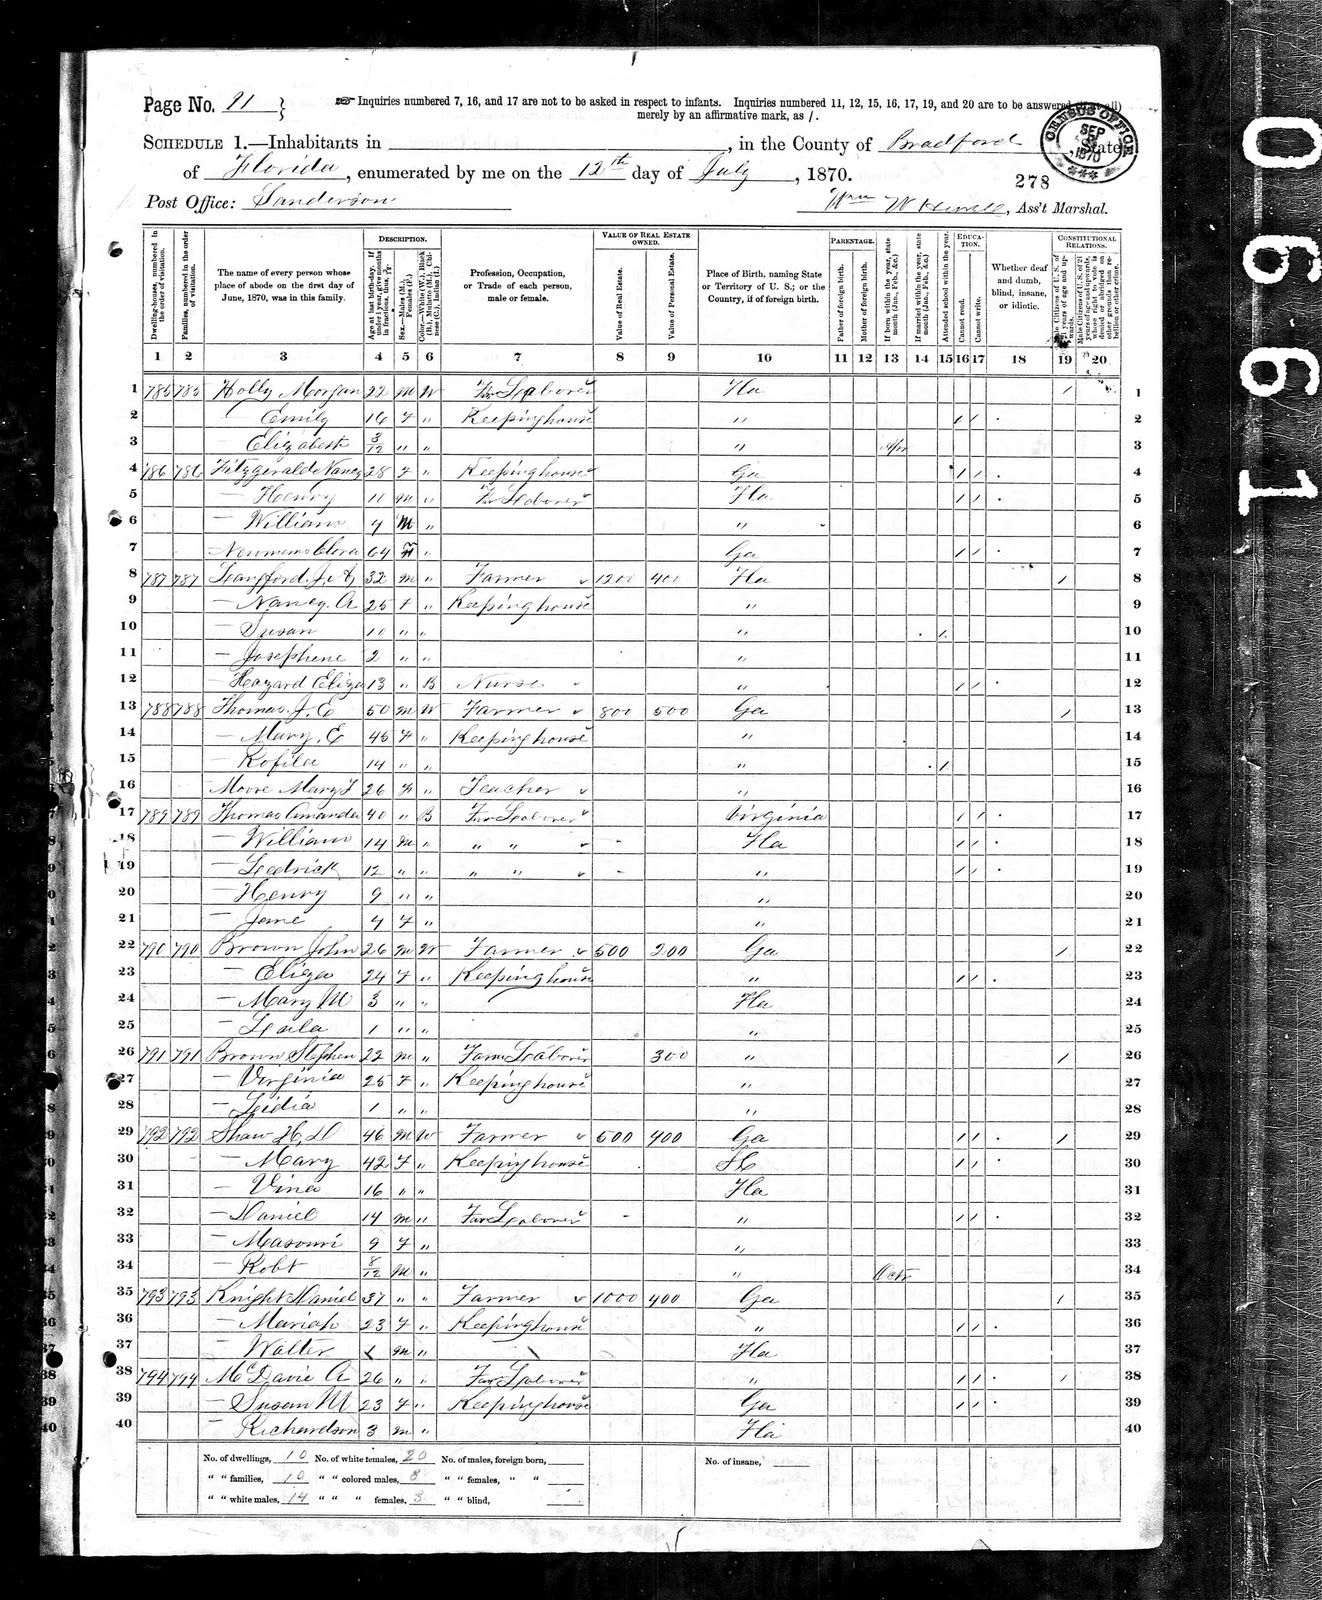 Page No. 91 }
Inquiries numbered 7, 16, and 17 are not to be asked in respect to infants. Inquiries numbered 11, 12, 15, 16, 17, 19, and 20 are to be answered (if at all)
merely by an affirmative mark, as /.
SCHEDULE 1.—Inhabitants in , in the County of Bradford State
of Florida, enumerated by me on the 12th day of July, 1870.
278
CENSUS OFFICE SEP 1870
Post Office: Sanderson Wm W , Ass't Marshal.
DESCRIPTION. VALUE OF REAL ESTATE OWNED. PARENTAGE. EDUCATION. CONSTITUTIONAL RELATIONS.
Dwelling-houses, numbered in the order of visitation.
Families, numbered in the order of visitation.
The name of every person whose place of abode on the first day of June, 1870, was in this family.
Age at last birth-day. If under 1 year, give months in fractions, thus,
Sex.—Males (M.), Females (F.)
Color.—White (W.), Black (B.), Mulatto (M.), Chinese (C.), Indian (I.)
Profession, Occupation, or Trade of each person, male or female.
Value of Real Estate.
Value of Personal Estate.
Place of Birth, naming State or Territory of U. S.; or the Country, if of foreign birth.
Father of foreign birth.
Mother of foreign birth.
If born within the year, state month (Jan., Feb., &c.)
If married within the year, state month (Jan., Feb., &c.)
Attended school within the year.
Cannot read.
Cannot write.
Whether deaf and dumb, blind, insane, or idiotic.
Male Citizens of U. S. of 21 years of age and upwards.
Male Citizens of U. S. of 21 years of age and upwards, whose right to vote is denied or abridged on other grounds than rebellion or other crime.
1 2 3 4 5 6 7 8 9 10 11 12 13 14 15 16 17 18 19 20
1 785 785 Holly Morgan 22 M W Far Laborer Fla / 1
2 — Emily 16 F " Keeping house " / / 2
3 — Elizabeth 3/12 " " " Apr 3
4 786 786 Fitzgerald Nancy 28 F " Keeping house Ga / / 4
5 — Henry 10 M " Far Laborer Fla / / 5
6 — William 4 M " " 6
7 64 " Ga / / 7
8 787 787 Langford J. A. 32 M " Farmer 1200 400 Fla / 8
9 — Nancy. A 25 F " Keeping house " 9
10 — Susan 10 " " " / 10
11 — Josephene 2 " " " 11
12 — Hazard Eliza 13 " B Nurse " / / 12
13 788 788 Thomas. J. E 50 M W Farmer 800 500 Ga / 13
14 — Mary. E 45 F " Keeping house " 14
15 — 14 " " " / 15
16 Moore Mary F 26 F " Teacher " 16
17 789 789 Thomas Amanda 40 " B Far Laborer Virginia / / 17
18 — William 14 M " " " Fla / / 18
19 — Ledrick 12 " " " " " / / 19
20 — Henry 9 " " " 20
21 — Jane 4 F " " 21
22 790 790 Brown John 26 M W Farmer 500 200 Ga / 22
23 — Eliza 24 F " Keeping house " / / 23
24 — Mary M 3 " " Fla 24
25 — 1 " " " 25
26 791 791 Brown Stephen 22 M " Farm Laborer 300 " / 26
27 — Virginia 25 F " Keeping house " 27
28 — Lidia 1 " " 28
29 792 792 Shaw H. D 46 M W Farmer 500 400 Ga / / / 29
30 — Mary 42 F " Keeping house / / 30
31 — Vina 16 " " Fla 31
32 — Daniel 14 M " Far Laborer " / / 32
33 — 9 F " " 33
34 — Robt 8/12 M " " Oct 34
35 793 793 Knight Daniel 37 " " Farmer 1000 400 Ga / 35
36 — Mariah 23 F " Keeping house " / / 36
37 — Walter 1 M " Fla 37
38 794 794 McDavie A 26 " " Far Laborer " / / / 38
39 — Susan M 23 F " Keeping house Ga / / 39
40 — Richardson 3 M " Fla 40
No. of dwellings, 10 No. of white females, 20 No. of males, foreign born, No. of insane,
" " families, 10 " " colored males, 8 " " females, " "
" " white males, 14 " " " females, 3 " " blind,
0661